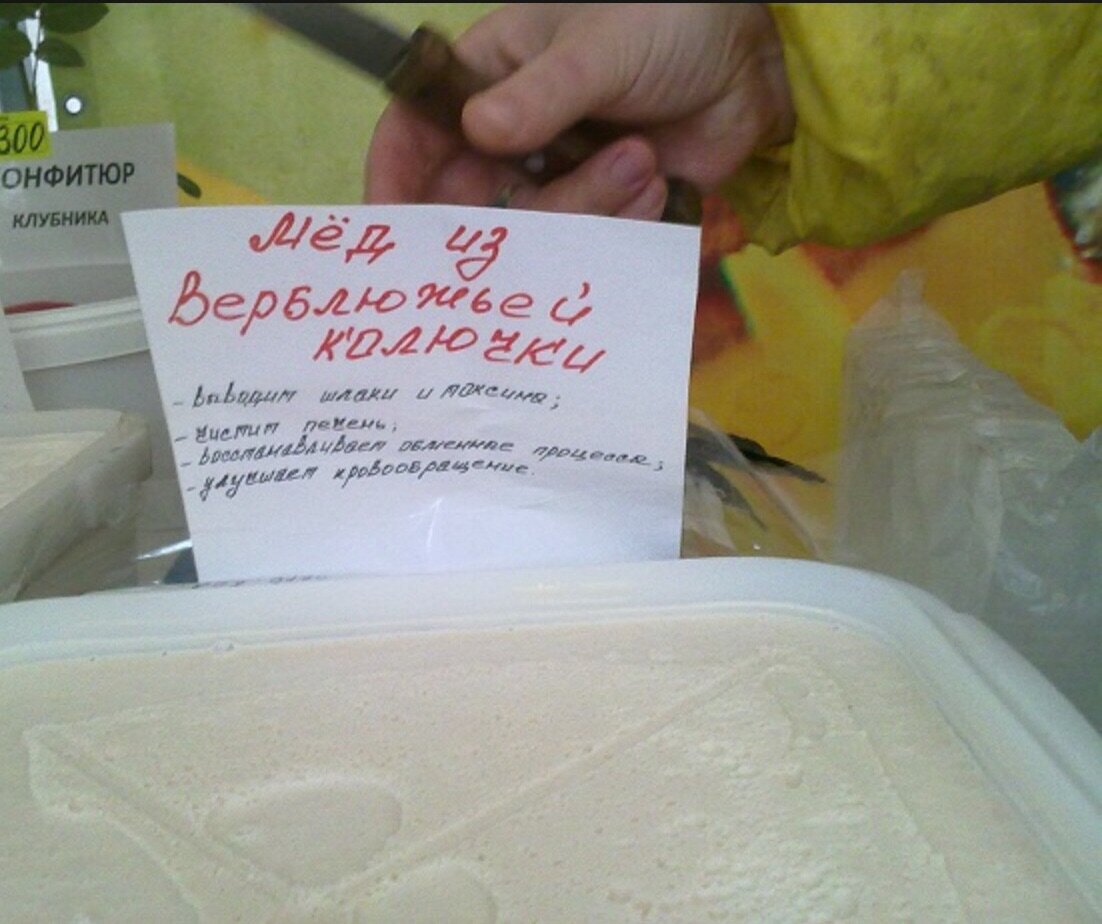 300
ОНФИТЮР
КЛУБНИКА
Мёд из
Верблюжьей
колючки
- выводит шлаки и токсины;
- чистит печень;
- восстанавливает обменные процессы;
- улучшает кровообращение.